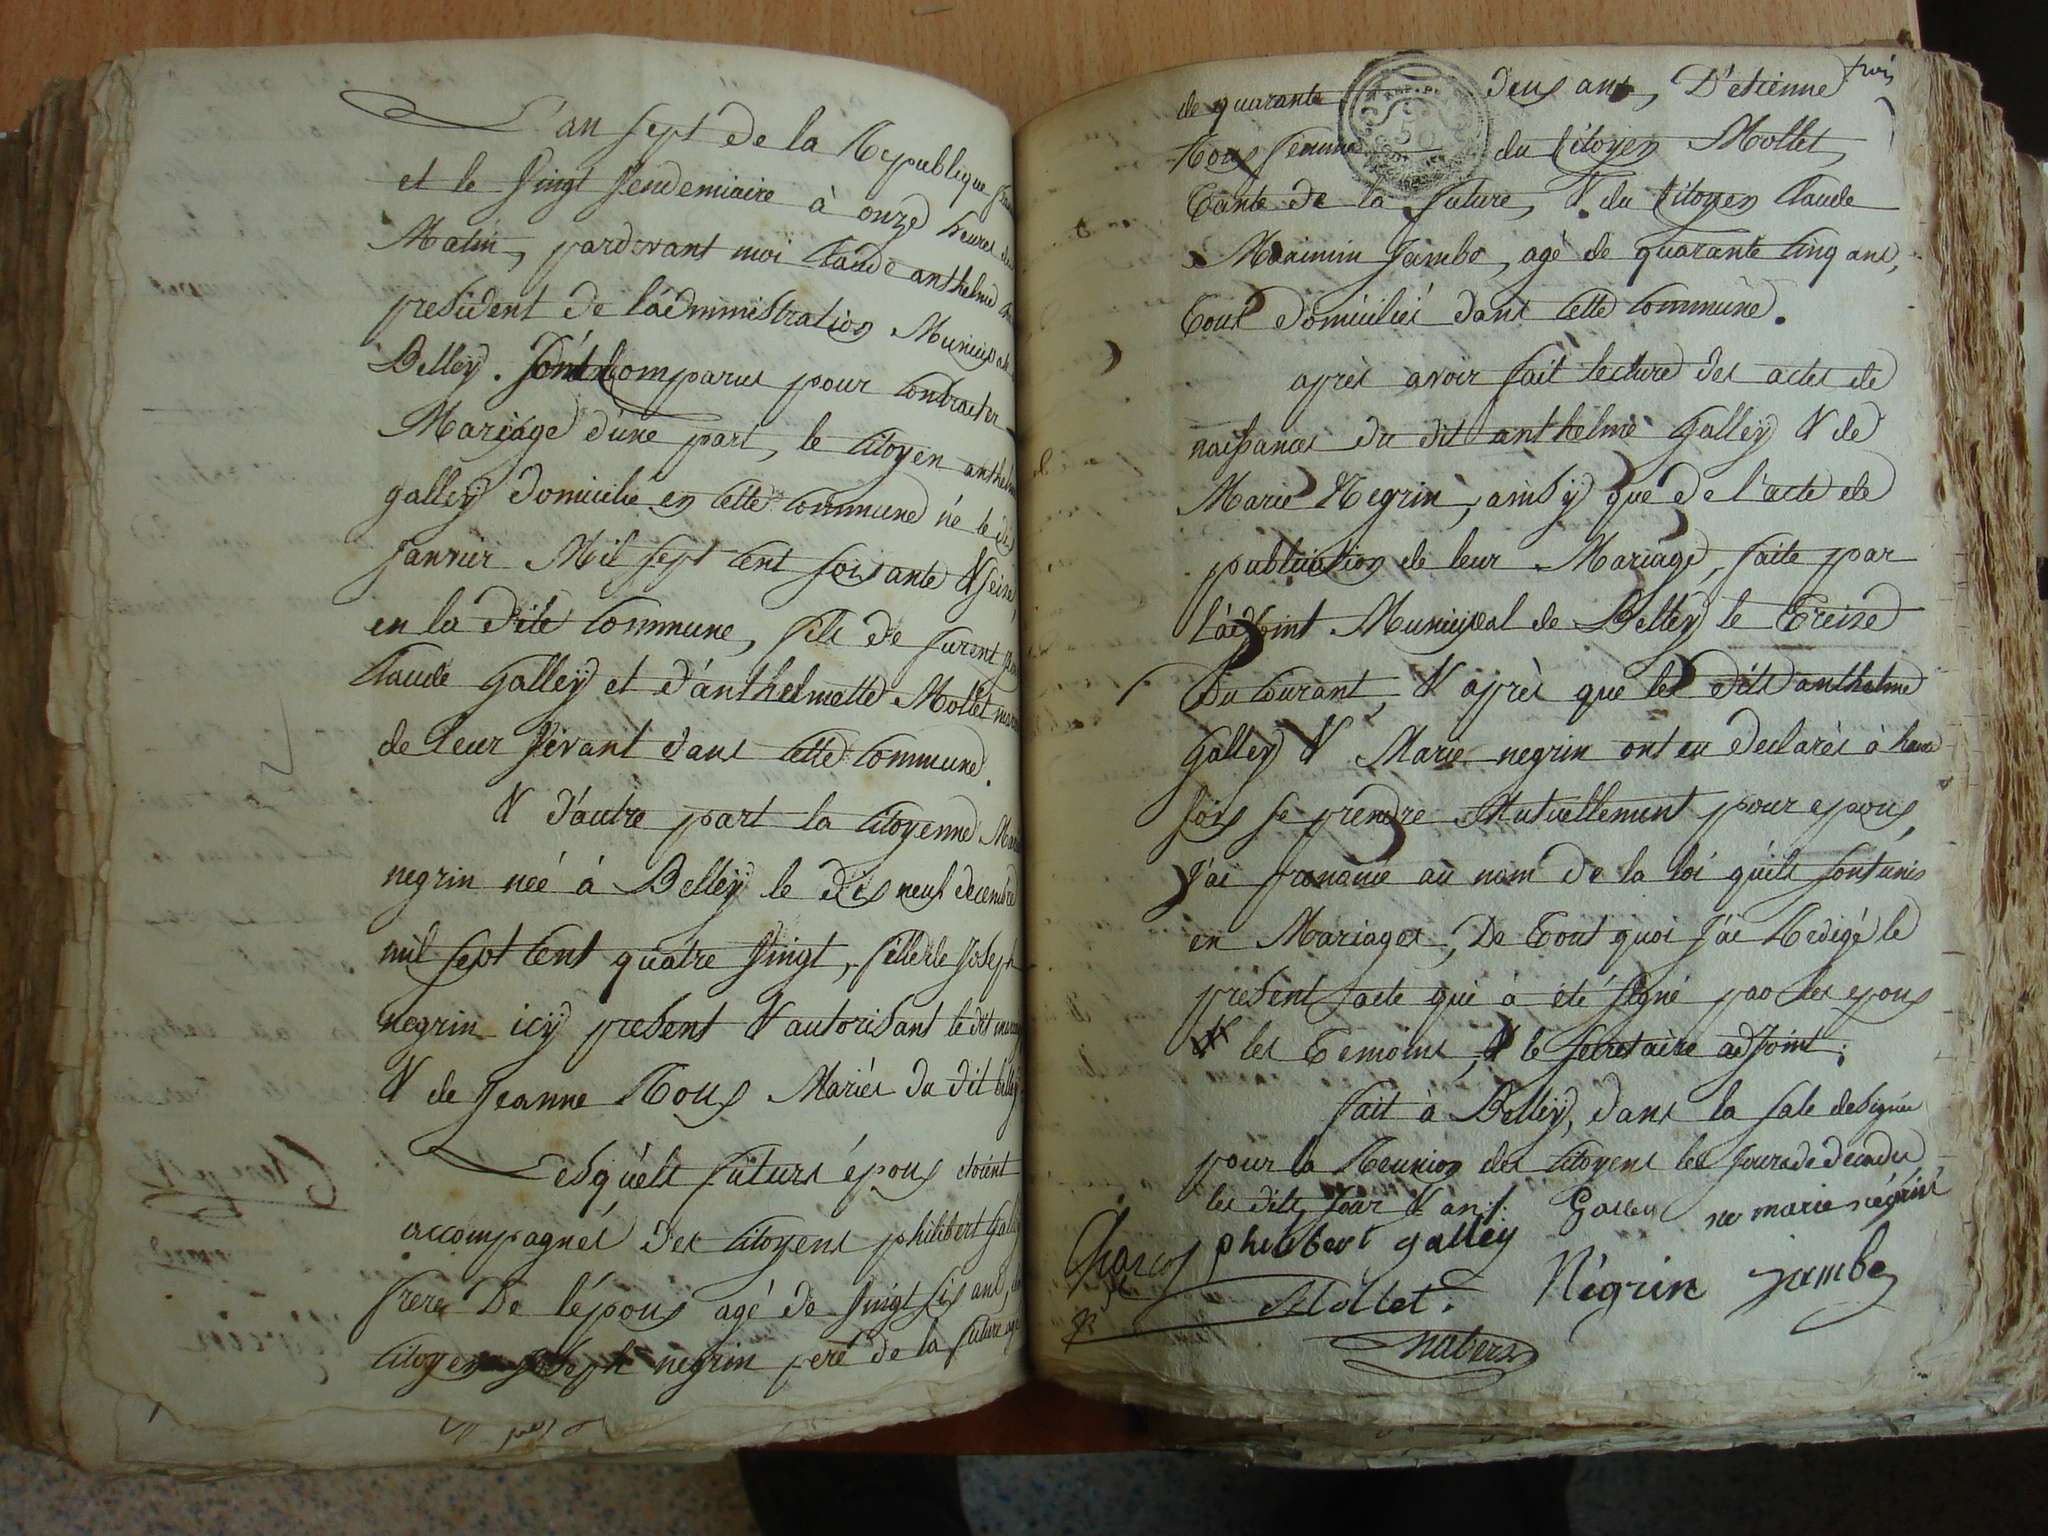 L'an sept de la Republique
et le vingt vendemiaire à onze heures du
Matin, pardevant moi Claude anthelme
president de l'administration Municipale
Belley. Sont Comparus pour Contracter
Mariage d'une part, le Citoyen anthelme
galley domicilié en Cette Commune né le dix
janvier Mil sept Cent soixante & seize,
en la dite Commune, fils de furent
Claude Galley et d'anthelmette Mollet
de leur vivant dans Cette Commune.
& d'autre part la Citoyenne Marie
negrin neé à Belley le dix neuf decembre
mil sept Cent quatre vingt, fille de Joseph
negrin icy present & autorisant le dit
& de Jeanne Roux Mariés du dit Belley
Lesquels futurs époux etoient
accompagnés des Citoyens philibert Galley
frere De l'époux agé de vingt six ans,
Citoyen Joseph negrin pere de la future agé
trois
de quarante deux ans, D'etienne
Roux femme du Citoyen Mollet
Tante de la future, & du Citoyen Claude
Maximin Jambe, agé de quarante Cinq ans,
Tous domiciliés dans Cette Commune.
après avoir fait lecture des actes de
naissances du dit anthelme Galley & de
Marie Negrin, ainsy que de l'acte de
publication de leur Mariage, faite par
l'adjoint Municipal de Belley le Treize
Du Courant, & après que les dits anthelme
Galley & Marie negrin ont eu declarés à haute
voix se prendre Mutuellement pour epoux,
J'ai prononcé au nom de la loi qu'ils sont unis
en Mariages, De Tout quoi J'ai Redigé le
present acte qui à été signé par les epoux
& les Temoins, & le secretaire adjoint.
fait à Belley, dans la sale designée
pour la Reunion des Citoyens les jours de decades
les dits Jour & an.
Galley marie négrin
philibert galley
Négrin Jambe
Mollet.